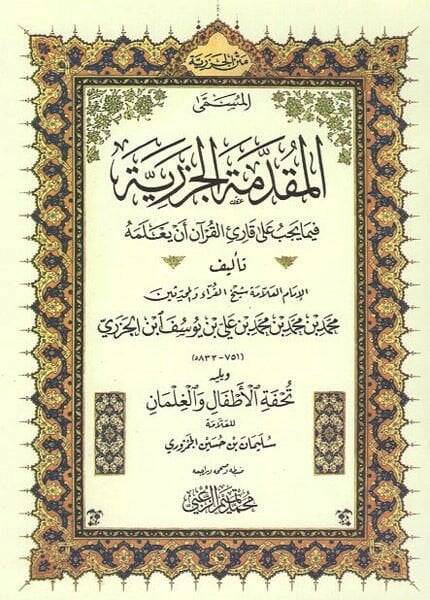 متن الجزرية
المسمى
المُقَدِّمَة الجَزَرِيَّة
فيما يجب على قارئ القرآن أن يعلمه
تأليف
الإمام العلامة شيخ القراء والمحدثين
محمد بن محمد بن محمد بن علي بن يوسف ابن الجزري
(٧٥١-٨٣٣هـ)
ويليه
تُحْفَةِ الأَطْفَالِ وَالغِلْمَانِ
للعلامة
سليمان بن حسين الجمزوري
ضبطه وصححه وراجعه
محمد تميم الزعبي